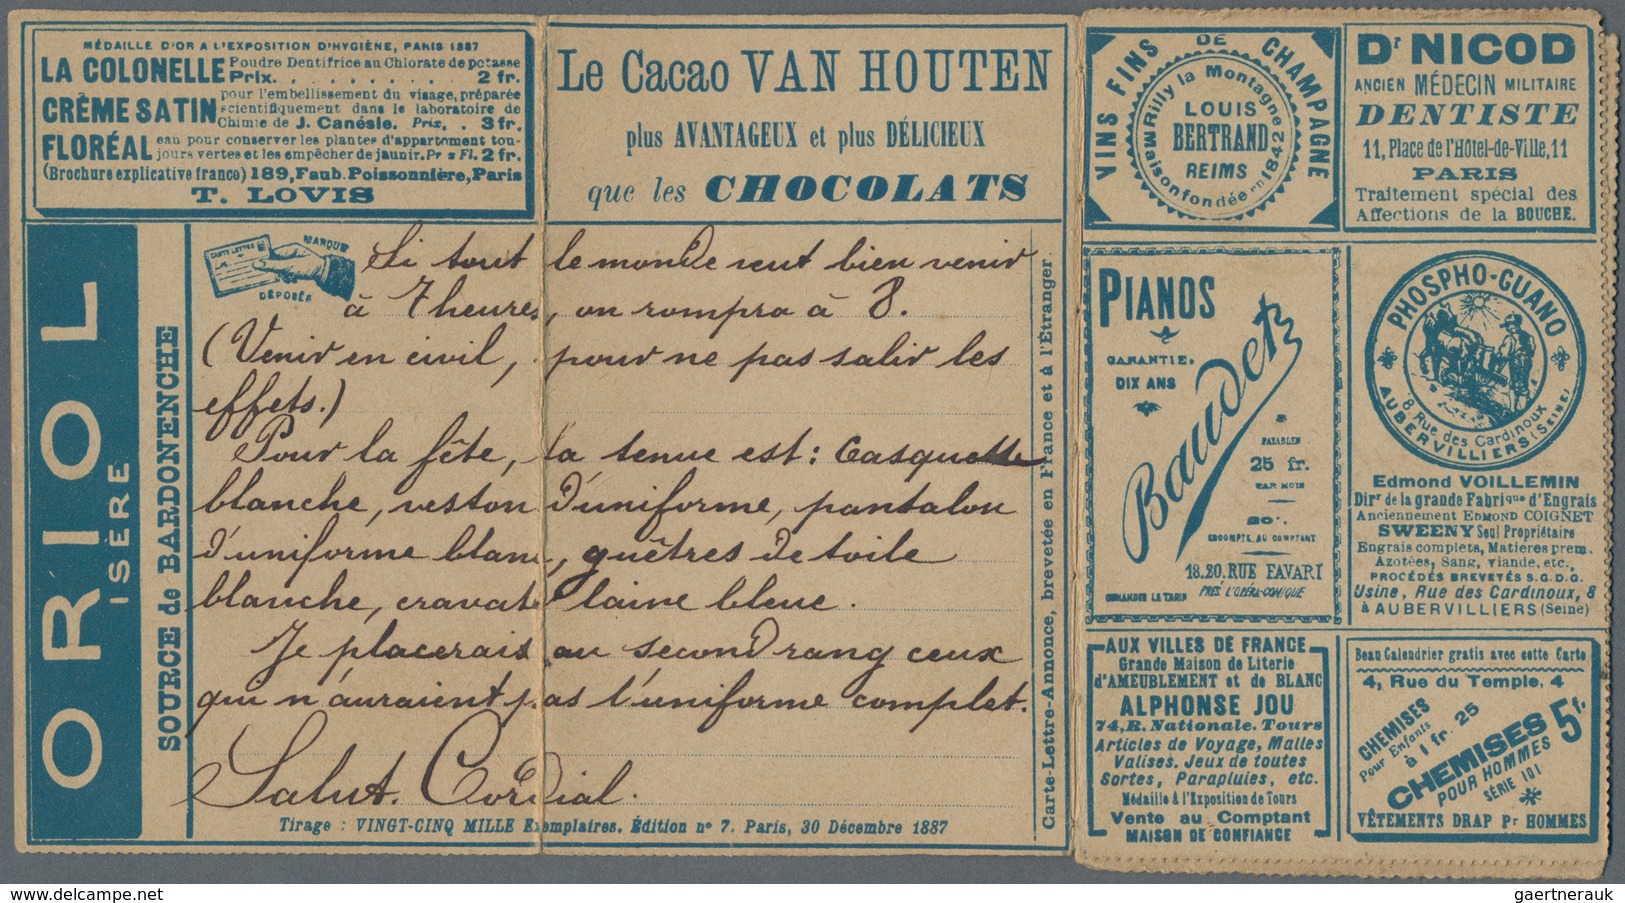 MÉDAILLE D'OR A L'EXPOSITION D'HYGIÈNE, PARIS 1887
LA COLONELLE Poudre Dentifrice au Chlorate de potasse
Prix. . . . . . . . . . 2 fr.
CRÈME SATIN pour l'embellissement du visage, préparée
scientifiquement dans le laboratoire de
Chimie de J. Canésie. Prix, . 3 fr.
FLORÉAL eau pour conserver les plantes d'appartement tou-
jours vertes et les empêcher de jaunir. Pr x Fl. 2 fr.
(Brochure explicative franco) 189, Faub. Poissonnière, Paris
T. LOVIS
Le Cacao VAN HOUTEN
plus AVANTAGEUX et plus DÉLICIEUX
que les CHOCOLATS
ORIOL
ISÈRE
SOURCE de BARDONENCHE
CARTE LETTRE
MARQUE
DÉPOSÉE
Si tout le monde veut bien venir
à 7 heures, on rompra à 8.
(Venir en civil, pour ne pas salir les
effets.)
Pour la fête, la tenue est: Casquette
blanche, veston d'uniforme, pantalon
d'uniforme blanc, guêtres de toile
blanche, cravate laine bleue.
Je placerais au second rang ceux
qui n'auraient pas l'uniforme complet.
Salut Cordial.
Tirage : VINGT-CINQ MILLE Exemplaires. Édition nº 7. Paris, 30 Décembre 1887
Carte-Lettre-Annonce, brevetée en France et à l'Étranger.
VINS FINS DE CHAMPAGNE
Rilly la Montagne
LOUIS
BERTRAND
REIMS
Maison fondée en 1842
Dr NICOD
ANCIEN MÉDECIN MILITAIRE
DENTISTE
11, Place de l'Hôtel-de-Ville, 11
PARIS
Traitement spécial des
Affections de la BOUCHE.
PIANOS
GARANTIE,
DIX ANS
Baudet
PAYABLES
25 fr.
PAR MOIS
ESCOMPTE AU COMPTANT
18.20. RUE FAVART
PRÈS L'OPÉRA-COMIQUE
DEMANDER LE TARIF
PHOSPHO-GUANO
8 Rue des Cardinoux
AUBERVILLIERS (SEINE)
Edmond VOILLEMIN
Dirr de la grande Fabrique d'Engrais
Anciennement EDMOND COIGNET
SWEENY Seul Propriétaire
Engrais complets, Matieres prem.
Azotées, Sang, viande, etc.,
PROCÉDÉS BREVETÉS S.G.D.G.
Usine, Rue des Cardinoux, 8
à AUBERVILLIERS (Seine)
AUX VILLES DE FRANCE
Grande Maison de Literie
d'AMEUBLEMENT et de BLANC
ALPHONSE JOU
74, R. Nationale. Tours
Articles de Voyage, Malles
Valises. Jeux de toutes
Sortes, Parapluies, etc.
Médaille à l'Exposition de Tours
Vente au Comptant
MAISON DE CONFIANCE
Beau Calendrier gratis avec cette Carte
4, Rue du Temple, 4
CHEMISES
Pour Enfants
à 1 fr. 25
CHEMISES 5 f.
POUR HOMMES
SÉRIE 101
VÊTEMENTS DRAP Pr HOMMES
gaertnerauk @ delcampe.net